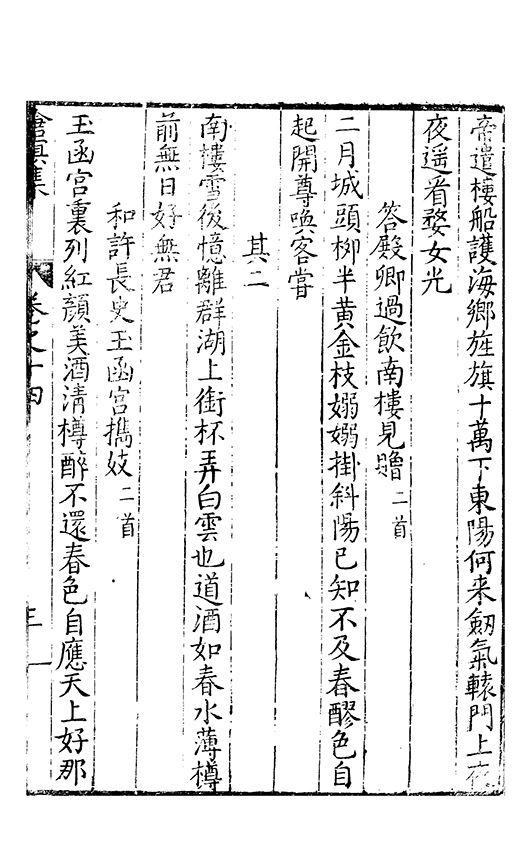 帝遣樓船護海鄉旌旗十萬下東陽何来劒氣轅門上夜
夜遥看婺女光
答殿卿過飲南樓見贈二首
二月城頭柳半黄金枝嫋嫋掛斜陽已知不及春醪色自
起開尊喚客嘗
其二
南樓雪後憶離群湖上銜杯弄白雲也道酒如春水薄樽
前無日好無君
和許長史玉函宫擕妓二首
玉函宫裏列紅顔美酒清樽醉不還春色自應天上好那
滄溟集 卷之十四